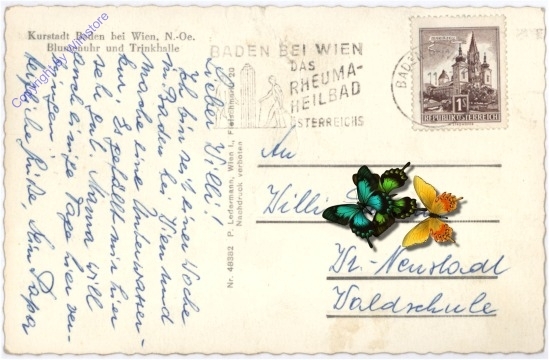 Kurstadt Baden bei Wien, N.-Oe.
Blumenuhr und Trinkhalle
Copyright by Winstore
Lieber Willi!
Ich bin seit einer Woche
in Baden bei Wien und
mache eine Unterwasser-
kur. Es gefällt mir hier
sehr gut. Mama will
auch einige Tage hier ver-
bringen.
Herzliche Grüße, Dein Papa
Nr. 48382 P. Ledermann, Wien I.,
Nachdruck verboten
BADEN BEI WIEN
DAS
RHEUMA-
HEILBAD
ÖSTERREICHS
BADEN
1S
REPUBLIK ÖSTERREICH
An
Willi
Wr. Neustadt
Waldschule